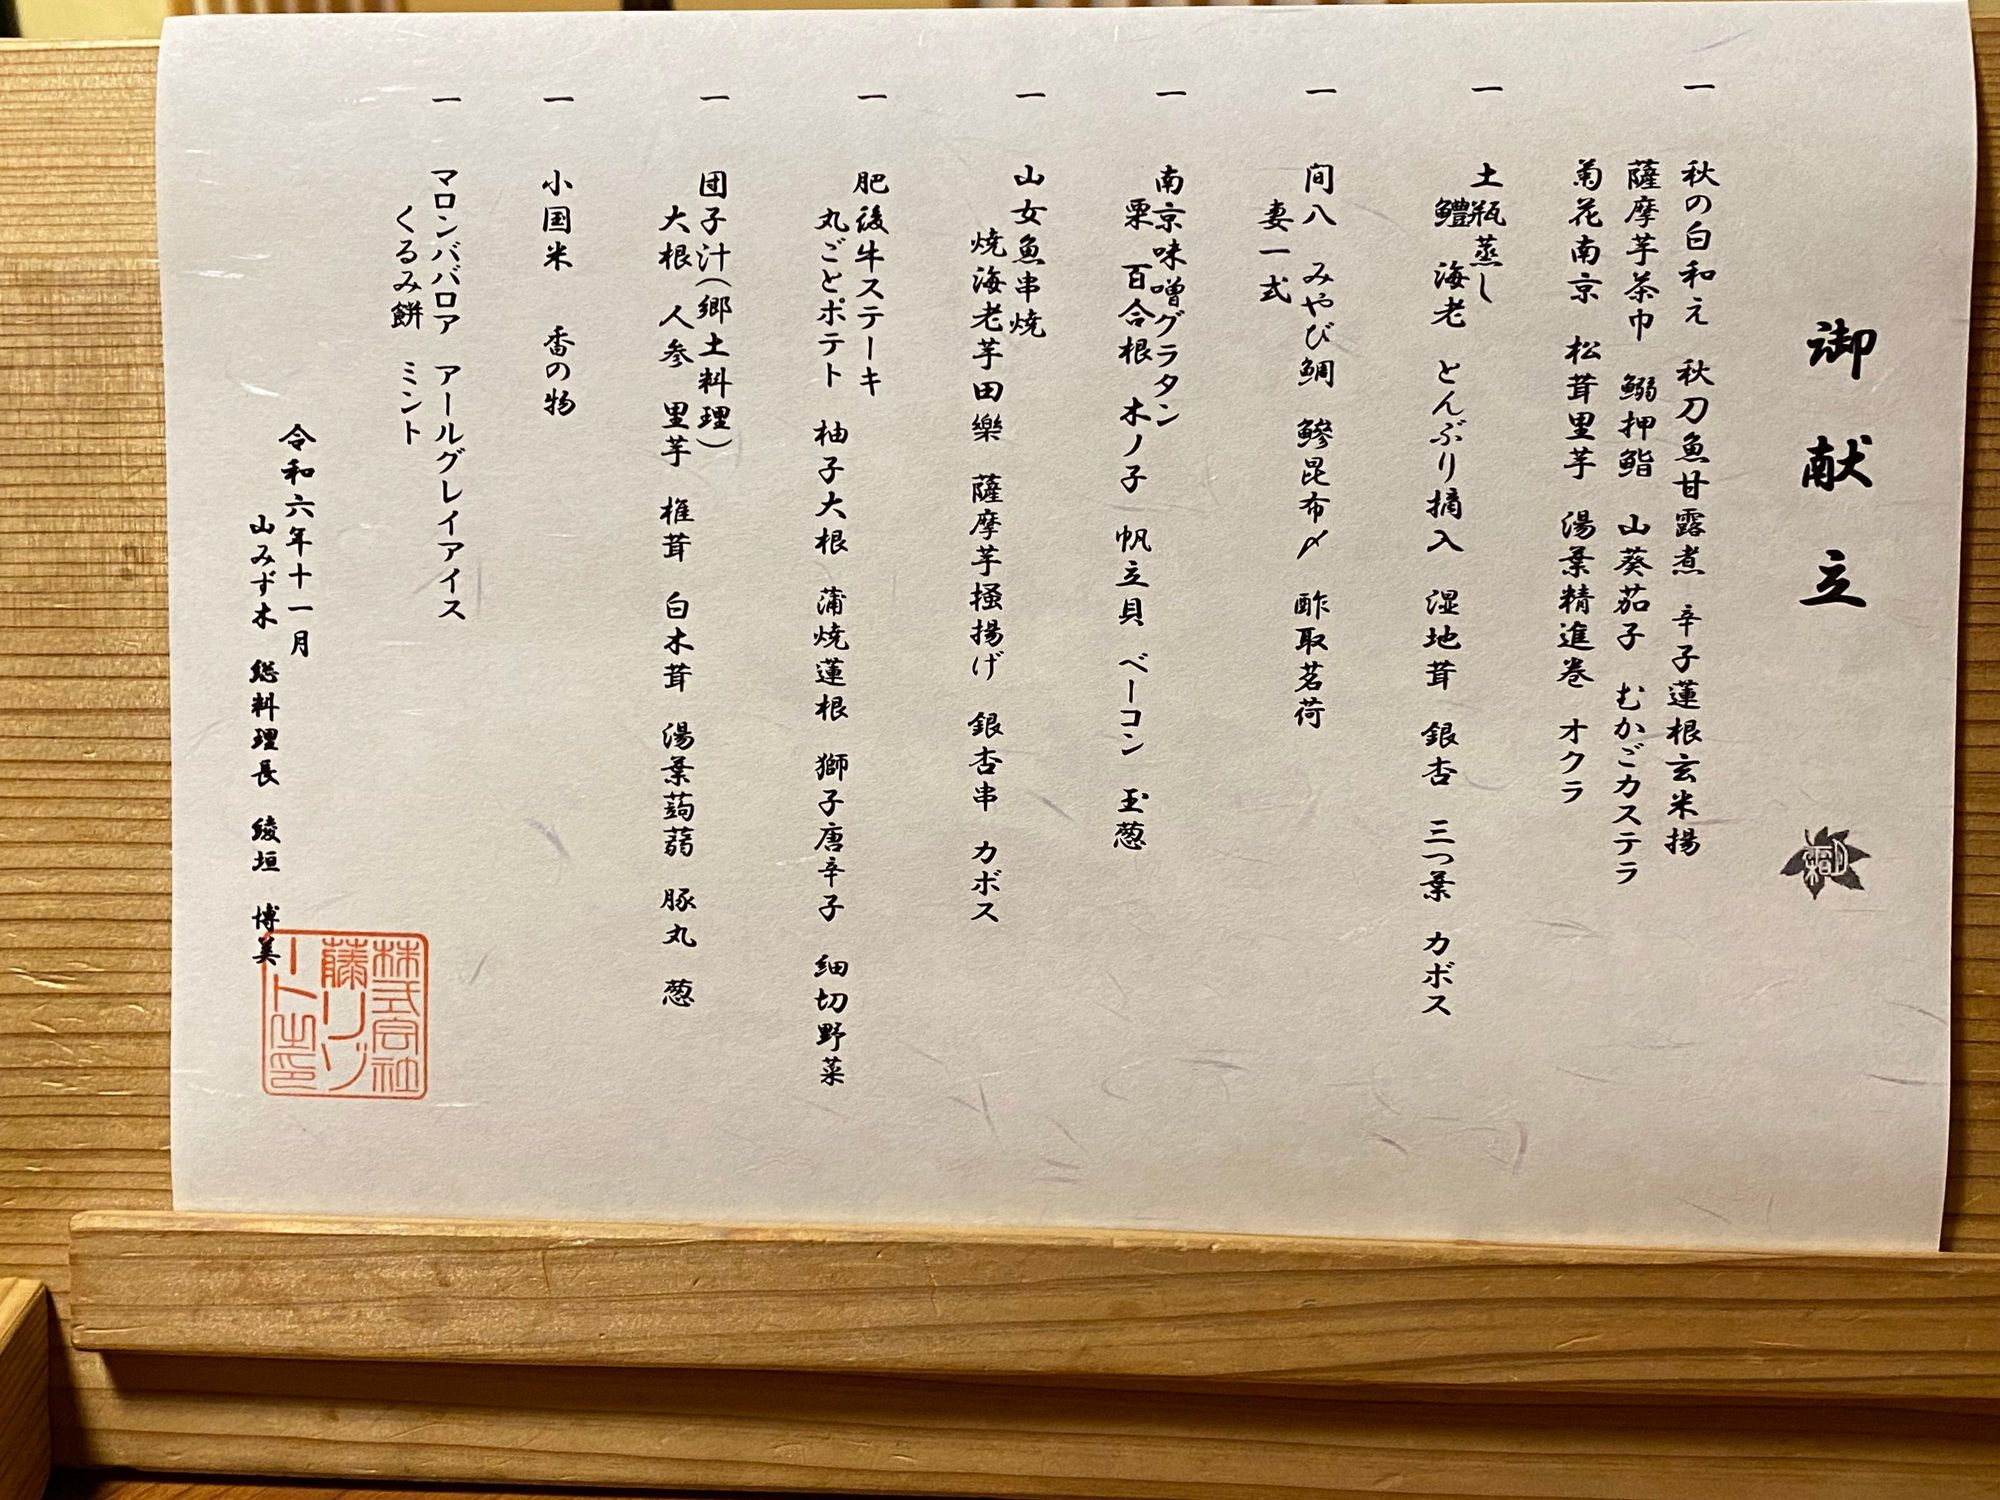 御献立
一 秋の白和え 秋刀魚甘露煮 辛子蓮根玄米揚
薩摩芋茶巾 鰯押鮨 山葵茄子 むかごカステラ
菊花南京 松茸里芋 湯葉精進巻 オクラ
一 土瓶蒸し
鱧 海老 とんぶり摘入 湿地茸 銀杏 三つ葉 カボス
一 間八 みやび鯛 鰺昆布〆 酢取茗荷
妻一式
一 南京味噌グラタン
栗 百合根 木ノ子 帆立貝 ベーコン 玉葱
一 山女魚串焼
焼海老芋田樂 薩摩芋掻揚げ 銀杏串 カボス
一 肥後牛ステーキ
丸ごとポテト 柚子大根 蒲焼蓮根 獅子唐辛子 細切野菜
一 団子汁(郷土料理)
大根 人参 里芋 椎茸 白木茸 湯葉蒟蒻 豚丸 葱
一 小国米 香の物
一 マロンババロア アールグレイアイス
くるみ餅 ミント
令和六年十一月
山みず木 総料理長 綾垣 博美
株式会社
藤リゾ
ート之印